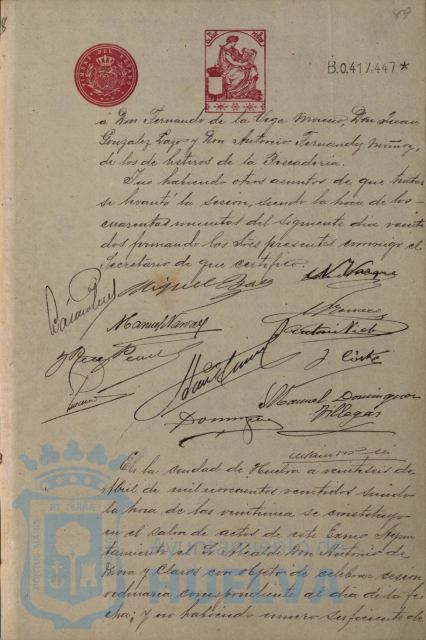 89
B.0.417.447*
á Don Fernando de la Vega Moreno, Don Juan
Gonzalez Lazo y Don Antonio Fernandez Muñoz,
de los destinos de la Pescaderia.
Y no habiendo otros asuntos de que tratar
se levantó la sesion, siendo la hora de los
cuarenta minutos del siguiente dia veinti
dos firmando los Sres presentes conmigo el
Secretario de que certifico.
Miguel
Vazquez
Manuel Narvaez
Antonio
J. Cortes
Perez
Manuel Dominguez
Villegas
Dominguez
En la ciudad de Huelva a veintiseis de
Abril de mil novecientos veintidos siendo
la hora de las veintiuna se constituyo
en el salon de actos de este Excmo Ayun
tamiento el Sr Alcalde Don Antonio de
Mora y Claros con objeto de celebrar sesion
ordinaria correspondiente al dia de la fe
cha; y no habiendo numero suficiente de